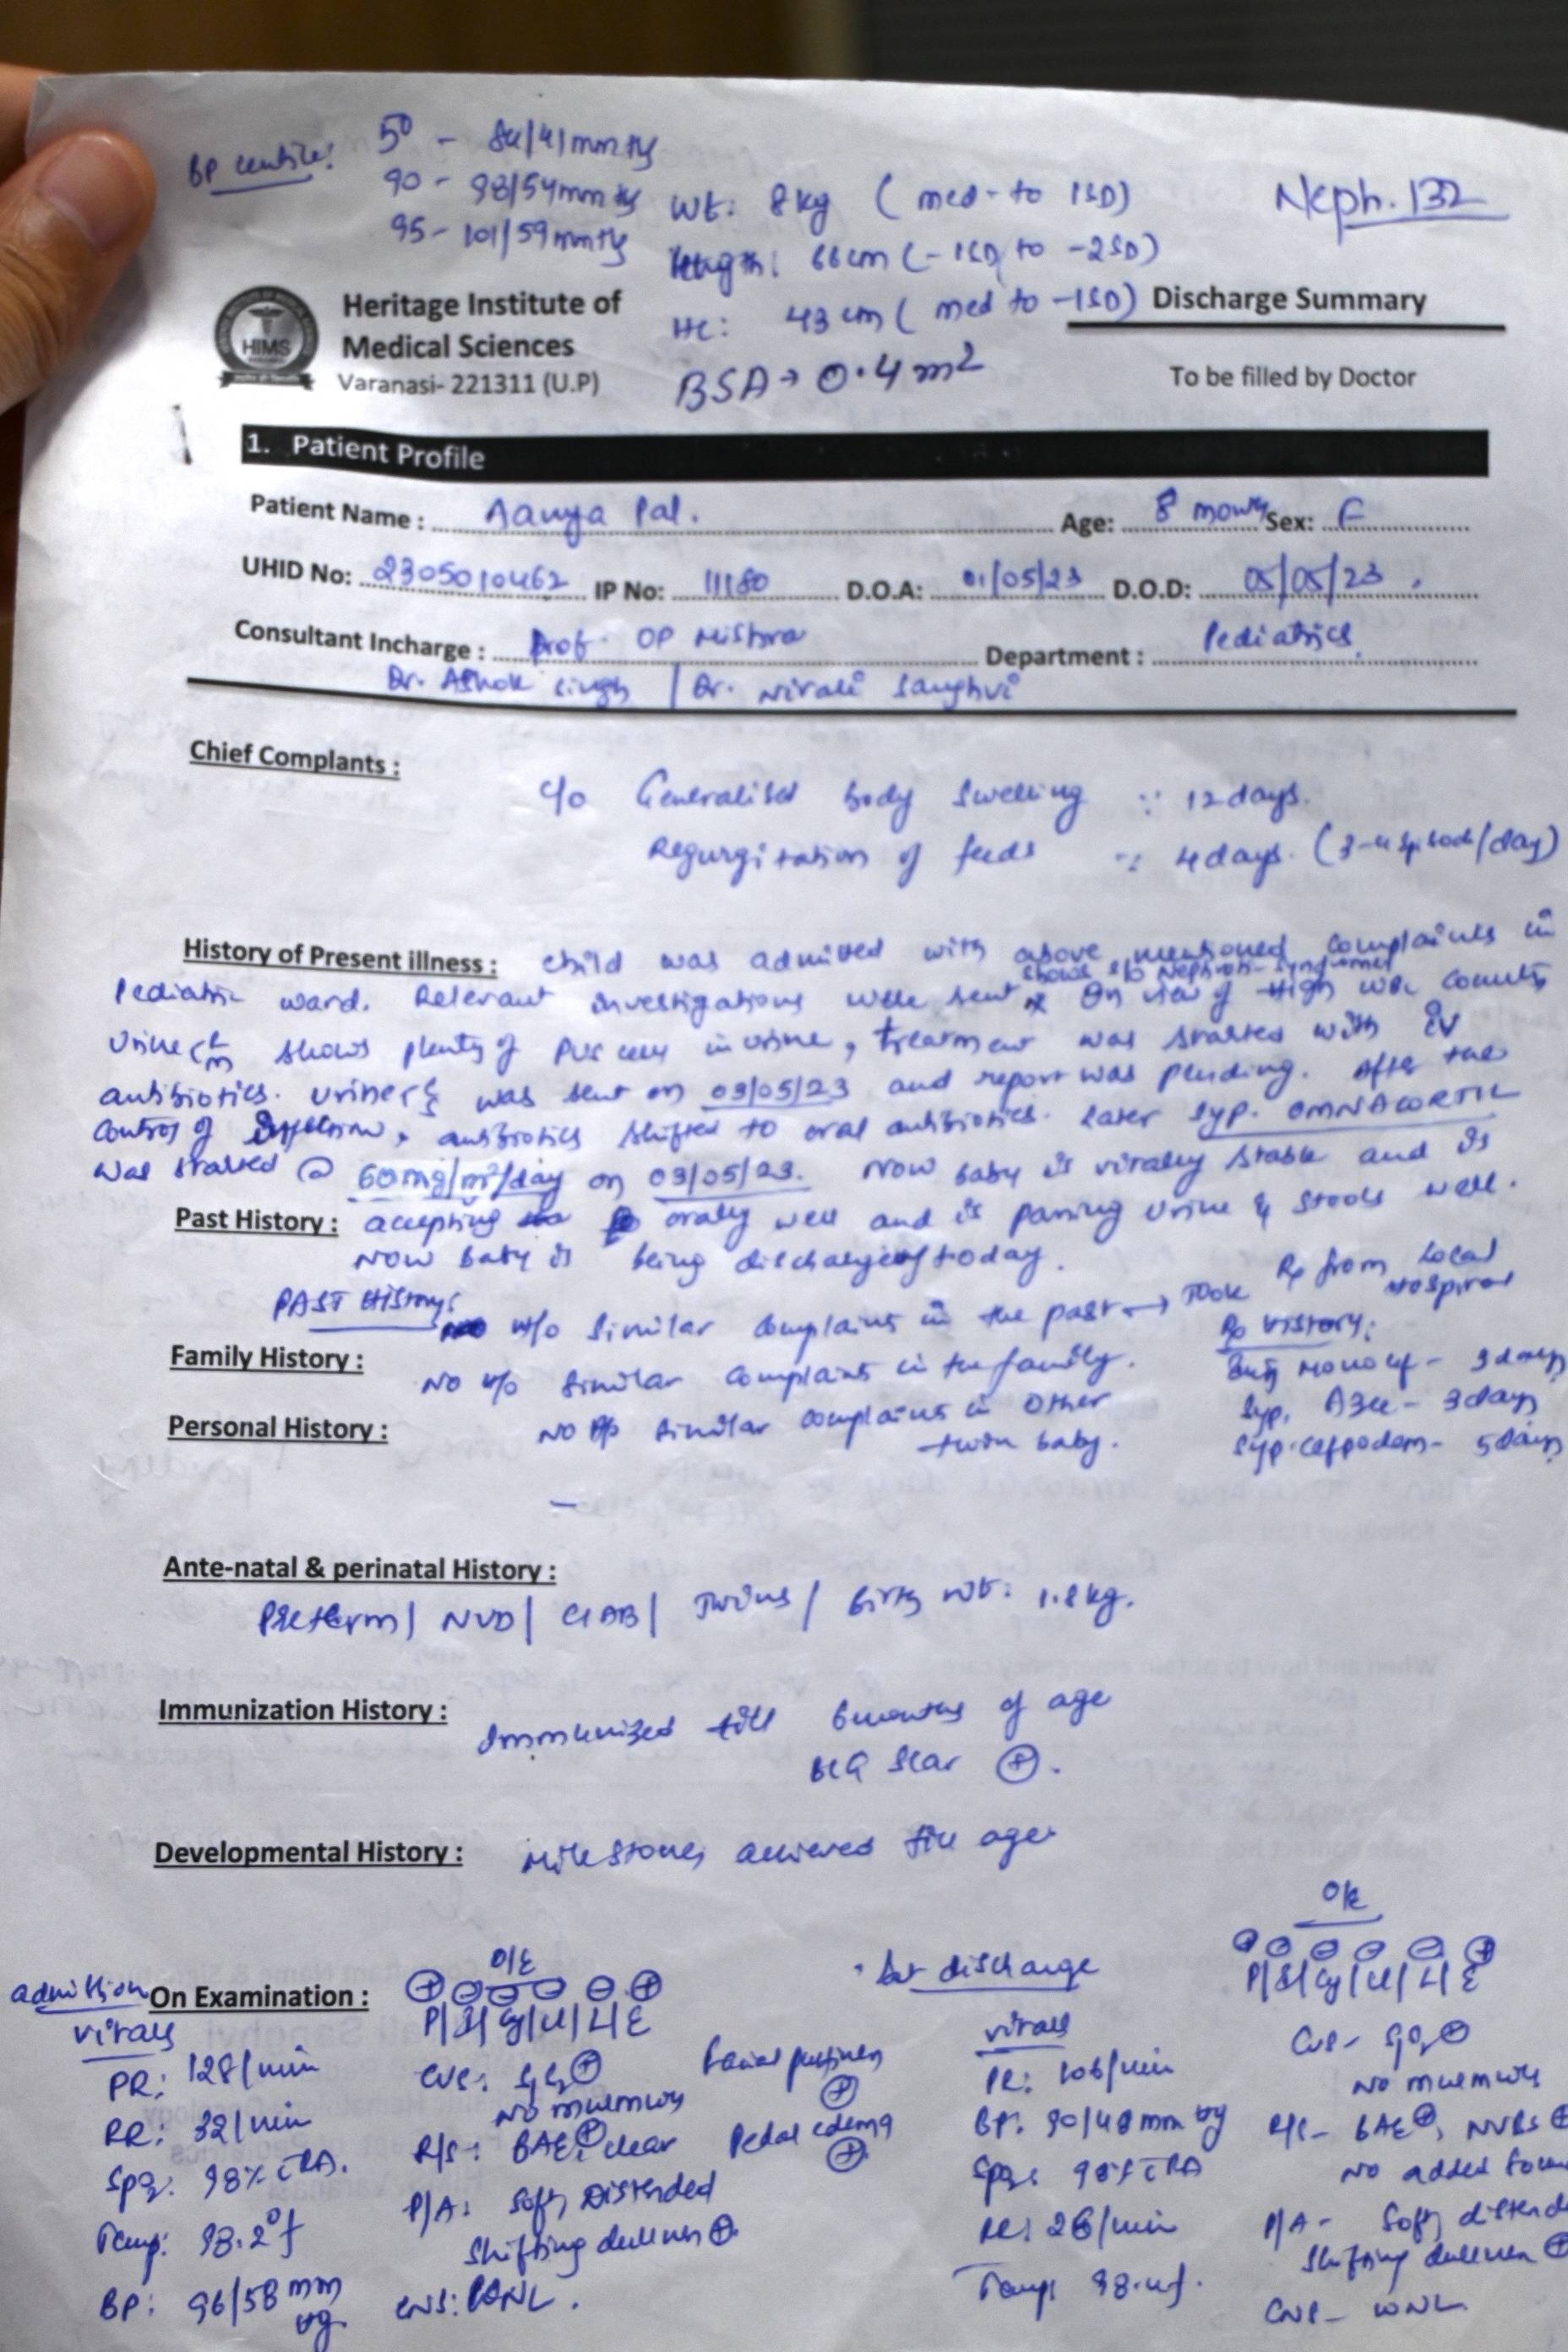 BP centile: 50 - 84/41mmHg
90 - 98/54mmHg
95- 101/59mmHg
Wt: 8kg ( med- to 1SD)
Length: 66cm (-1SD to -2SD)
HC: 43 cm ( med to -1SD)
BSA→ 0.4 m²
Neph. 132
HIMS
Heritage Institute of
Medical Sciences
Varanasi- 221311 (U.P)
Discharge Summary
To be filled by Doctor
1. Patient Profile
Patient Name : Aanya Pal. Age: 8 months Sex: F
UHID No: 2305010462 IP No: 11180 D.O.A: 01/05/23 D.O.D: 05/05/23.
Consultant Incharge : Prof. OP Mishra Department : Pediatrics
Dr. Ashok Singh / Dr. Nirali Sanghvi
Chief Complants :
c/o Generalised body swelling :: 12 days.
Regurgitation of feeds :: 4 days. (3-4 episode/day)
History of Present illness : child was admitted with above mentioned complaints in
shows s/o Nephrotic syndrome
Pediatric ward. Relevant investigations were sent & In view of High WBC counts
Urine shows plenty of pus cells in urine, treatment was started with IV
antibiotics. Urine was sent on 03/05/23 and report was pending. After the
control of , antibiotics shifted to oral antibiotics. Later Syp. OMNACORTIL
was started @ 60mg/m²/day on 03/05/23. Now baby is vitally stable and is
Past History : accepting orally well and is passing urine & stools well.
Now baby is being discharged today.
PAST History: H/o similar complaints in the past → Took Rx from Local
Hospital
Rx History:
Family History : No H/o similar complaints in the family.
Inj Monocef - 3 days
Personal History : No H/o similar complaints in other
twin baby.
Syp. Azee - 3 days
Syp. Cefpodem - 5 days
–
Ante-natal & perinatal History :
Preterm/ NVD/ CIAB/ Twins / Birth wt: 1.8kg.
Immunization History : Immunized till 6 months of age
BCG Scar ⊕.
Developmental History : Milestones achieved till age
admission
On Examination :
O/E
⊕ ⊖ ⊖ ⊖ ⊖ ⊕
P/I/Cy/Cl/L/E
Vitals
PR: 128/min
RR: 32/min
SpO2: 98% RA.
Temp: 98.2°f
BP: 96/58 mm
Hg
CVS: S1S2⊕
No murmurs
R/S: BAE⊕, clear
P/A: Soft, Distended
Shifting dullness ⊕.
CNS: WNL.
Facial puffiness
⊕
Pedal edema
⊕
At discharge
Vitals
PR: 106/min
BP: 90/48 mm Hg
SpO2: 98% RA
RR: 26/min
Temp: 98.4f.
O/E
P/I/Cy/Cl/L/E
CVS - S1S2⊕
No murmurs
R/S- BAE⊕, NVBS⊕
No added
P/A - Soft,
Shifting dullness ⊕
CNS - WNL.